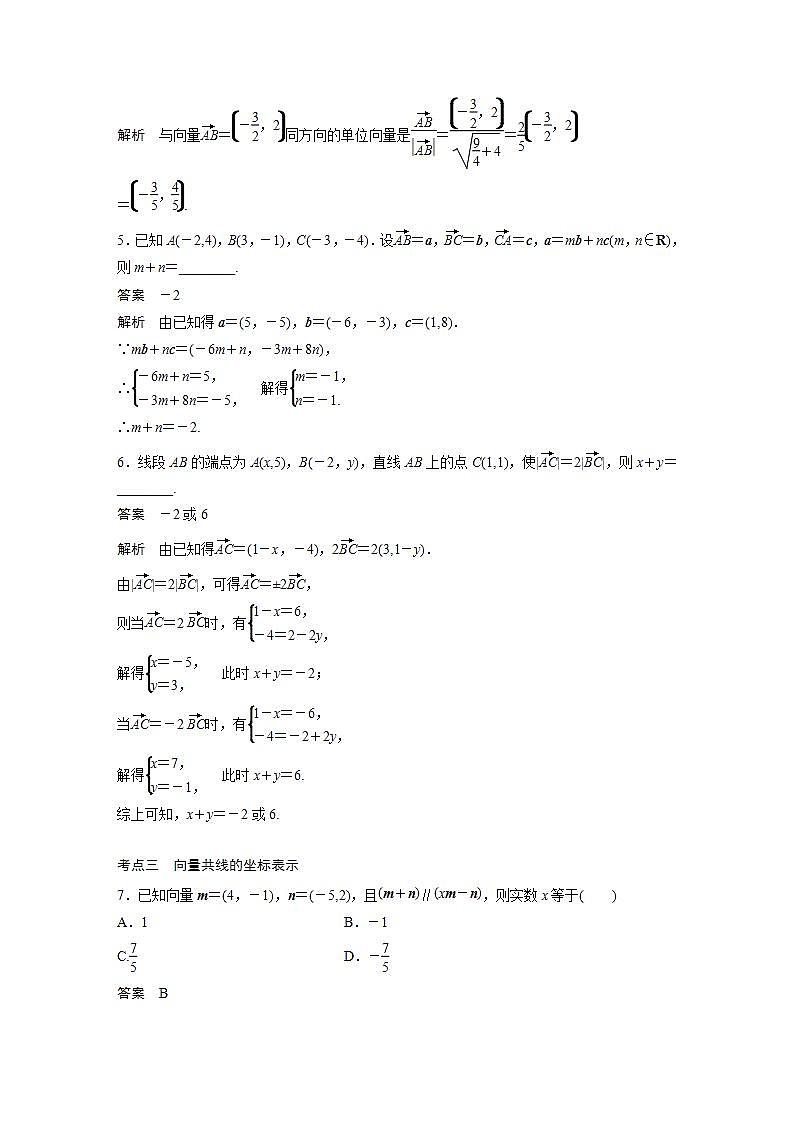 解析　与向量$\overrightarrow{AB}$=$\left(-\frac{3}{2}，2\right)$同方向的单位向量是$\frac{\overrightarrow{AB}}{|\overrightarrow{AB}|}$=$\frac{\left(-\frac{3}{2}，2\right)}{\sqrt{\frac{9}{4}+4}}$=$\frac{2}{5}\left(-\frac{3}{2}，2\right)$
=$\left(-\frac{3}{5}，\frac{4}{5}\right)$.
5．已知 A(－2,4)，B(3，－1)，C(－3，－4)．设$\overrightarrow{AB}$=a，$\overrightarrow{BC}$=b，$\overrightarrow{CA}$=c，a=mb+nc(m，n∈R)，
则 m+n=________.
答案　－2
解析　由已知得 a＝(5，－5)，b＝(－6，－3)，c＝(1,8)．
∵mb＋nc＝(－6m＋n，－3m＋8n)，
∴$\begin{cases}-6m+n=5，\\-3m+8n=-5，\end{cases}$　解得$\begin{cases}m=-1，\\n=-1.\end{cases}$
∴m＋n＝－2.
6．线段 AB 的端点为 A(x,5)，B(－2，y)，直线 AB 上的点 C(1,1)，使|$\overrightarrow{AC}$|=2|$\overrightarrow{BC}$|，则 x＋y＝
________.
答案　－2 或 6
解析　由已知得$\overrightarrow{AC}$=(1－x，－4)，2$\overrightarrow{BC}$=2(3,1－y)．
由|$\overrightarrow{AC}$|=2|$\overrightarrow{BC}$|，可得$\overrightarrow{AC}$=±2$\overrightarrow{BC}$，
则当$\overrightarrow{AC}$=2$\overrightarrow{BC}$时，有$\begin{cases}1-x=6，\\-4=2-2y，\end{cases}$
解得$\begin{cases}x=-5，\\y=3，\end{cases}$　此时 x＋y＝－2；
当$\overrightarrow{AC}$=－2$\overrightarrow{BC}$时，有$\begin{cases}1-x=-6，\\-4=-2+2y，\end{cases}$
解得$\begin{cases}x=7，\\y=-1，\end{cases}$　此时 x＋y＝6.
综上可知，x＋y＝－2 或 6.
考点三　向量共线的坐标表示
7．已知向量 m＝(4，－1)，n＝(－5,2)，且(m＋n)∥(xm－n)，则实数 x 等于(　　)
A．1　B．－1
C.$\frac{7}{5}$　D．－$\frac{7}{5}$
答案　B